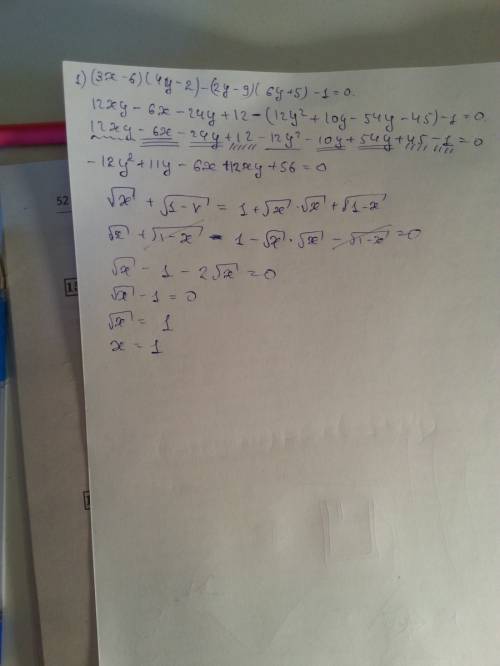 1) (3x-6)(4y-2)-(2y-9)(6y+5)-1=0.
12xy-6x-24y+12-(12y²+10y-54y-45)-1=0.
12xy-6x-24y+12-12y²-10y+54y+45-1=0
-12y²+11y-6x+12xy+56=0
√x + √1-x = 1+√x·√x+√1-x
√x + √1-x - 1-√x·√x-√1-x=0
√x - 1 - 2√x = 0
√x - 1 = 0
√x = 1
x = 1
52